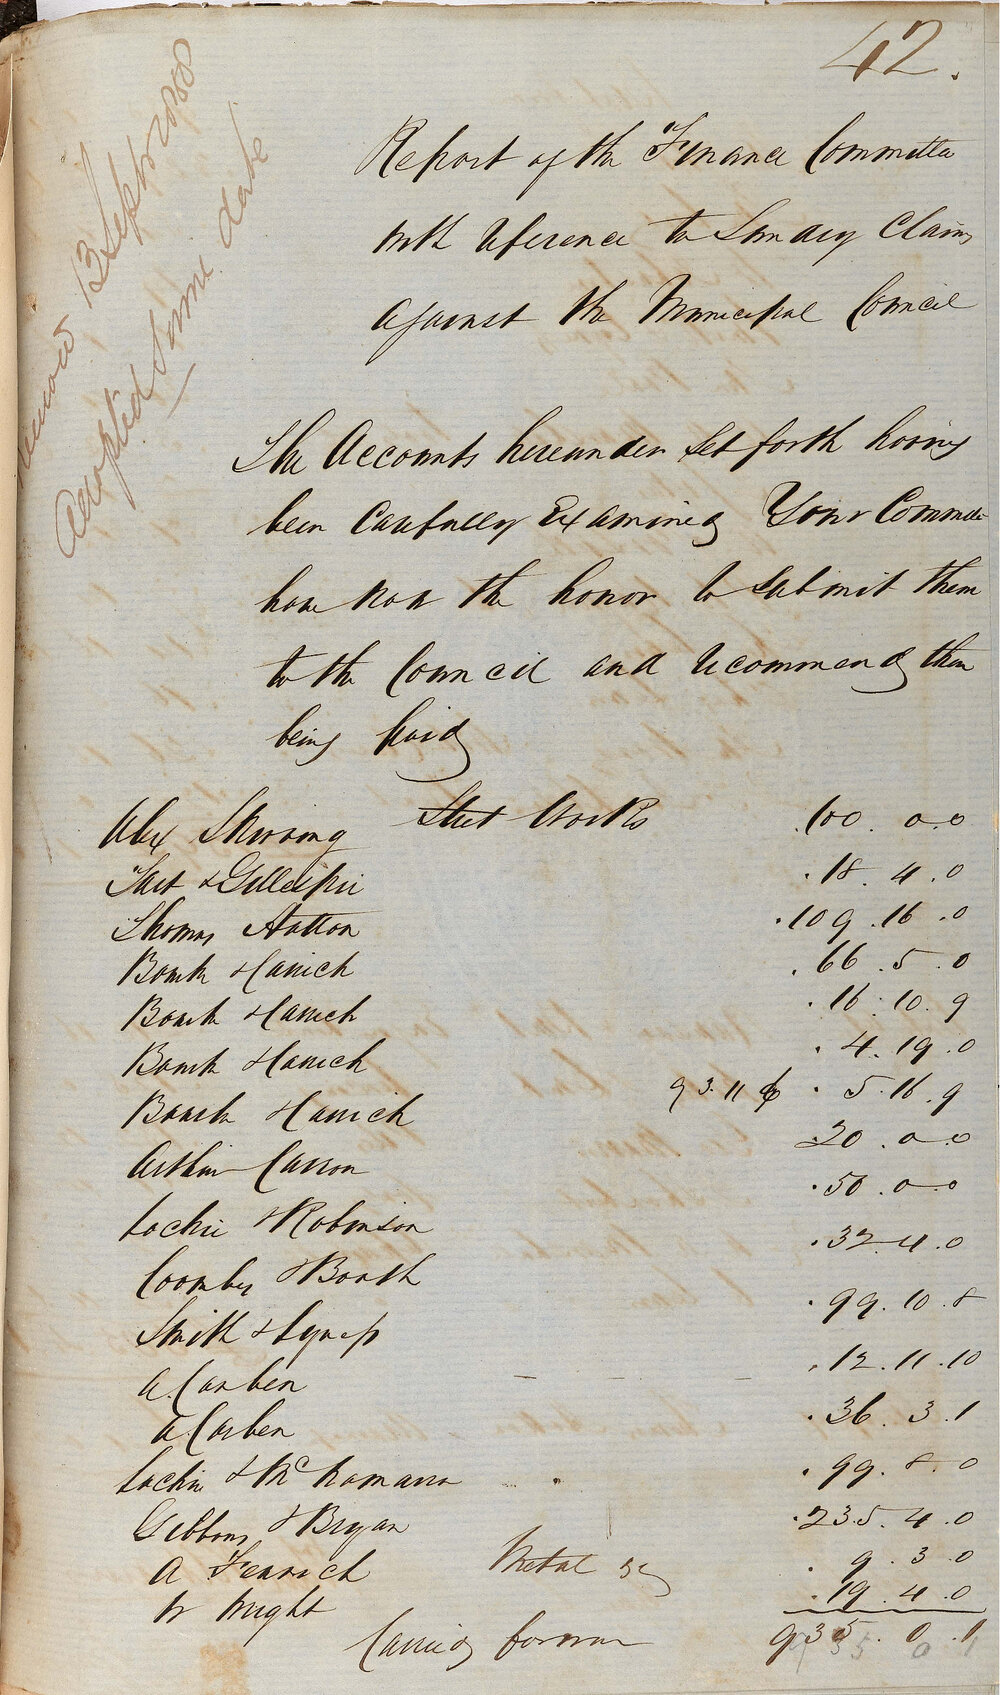 42.
13 Septr 1858
Adopted Same date
Report of the Finance Committee
with reference to Sundry Claims
against the Municipal Council
The Accounts hereunder set forth having
been Carefully Examined Your Committee
have now the honor to Submit them
to the Council and recommend them
being paid
Street Works
Alex Skirving 100. 0. 0
Tait & Gillespie 18. 4. 0
Thomas Hatton 109. 16. 0
Booth & 66. 5. 0
Booth & 16. 10. 9
Booth & 4. 19. 0
Booth & 93. 11. 6 5. 16. 9
Arthur Carson 20. 0. 0
Lockie & Robinson 50. 0. 0
Coombes & Booth 32. 4. 0
Smith & 99. 10. 8
A. Corben 12. 11. 10
A Corben 36. 3. 1
Lockie & McNamara 99. 8. 0
Gibbons & Bryan 235. 4. 0
A Fenwick Metal 9. 3. 0
W Wright 19. 4. 0
Carried forward 935. 0. 1